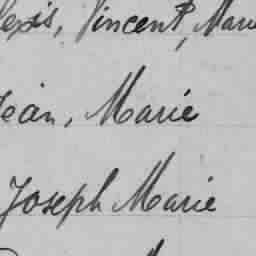 lexis, Vincent, Marie
Jean, Marie
Joseph Marie